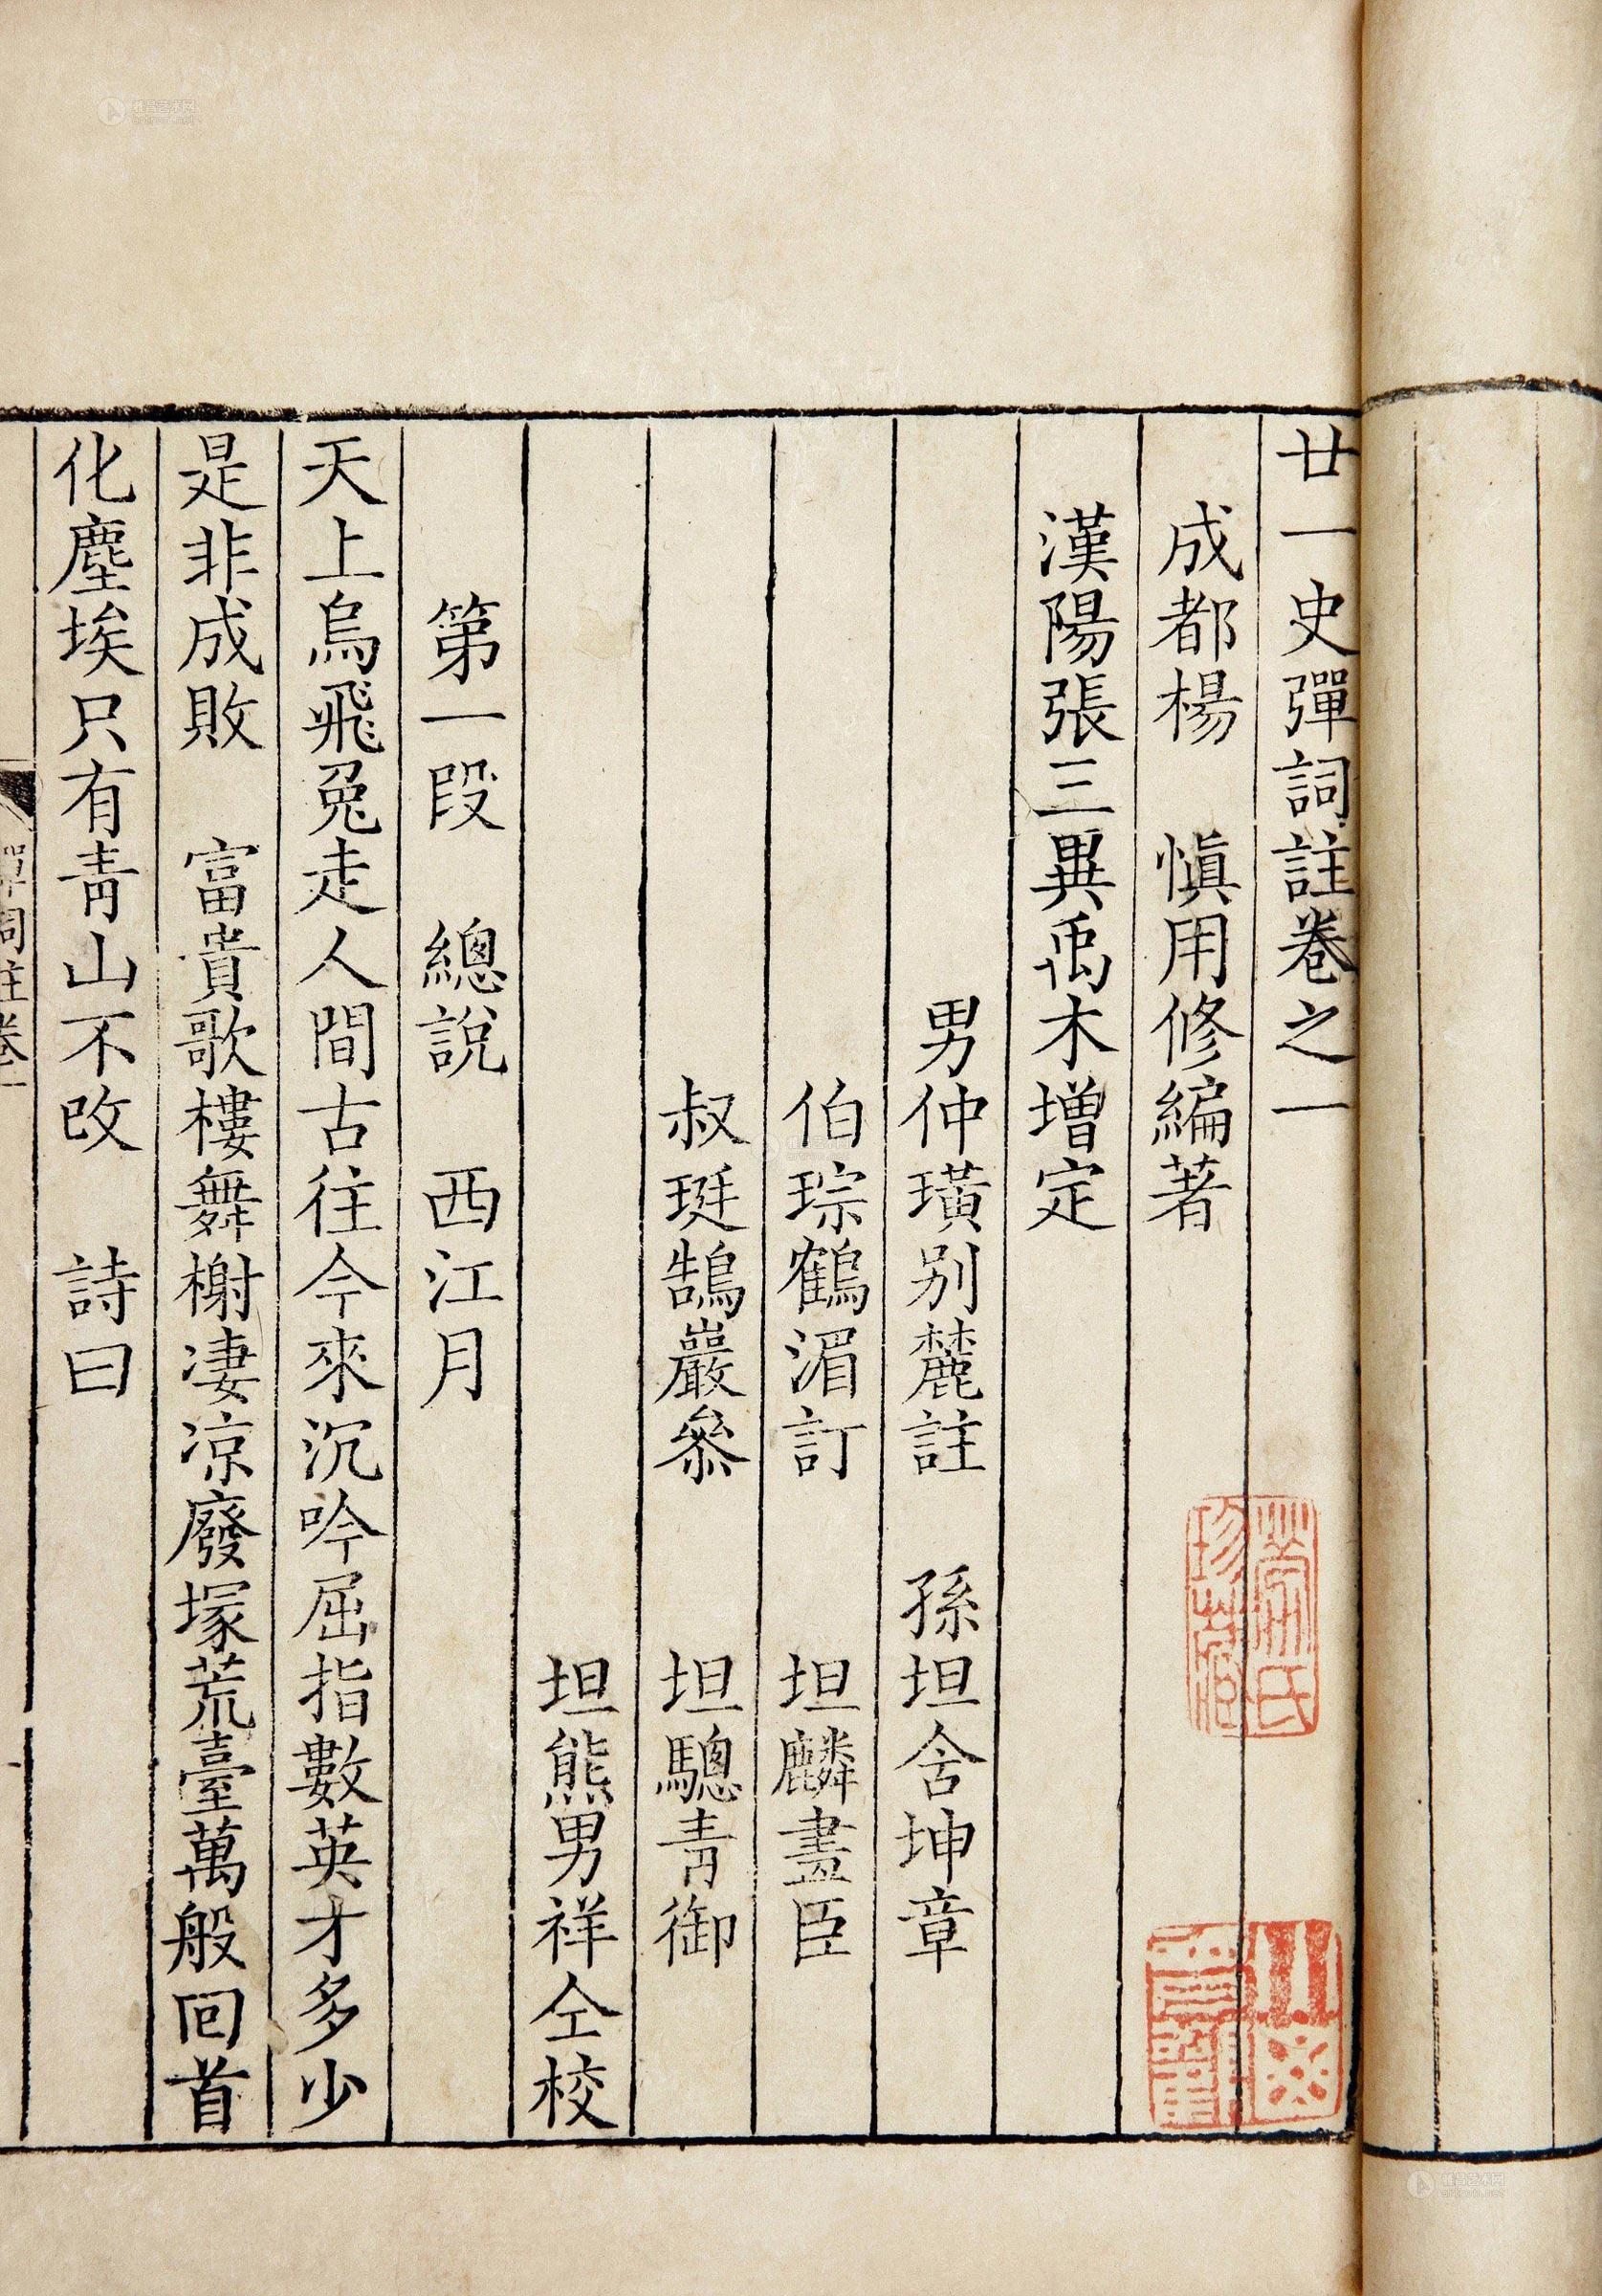 廿一史彈詞註卷之一
成都楊　慎用修編著
漢陽張三異禹木增定
男仲璜別麓註　孫坦舍坤章
伯琮鶴湄訂　坦麟晝臣
叔珽鵠巖叅　坦驄青御
坦熊男祥仝校
第一段　總說　西江月
天上烏飛兔走人間古往今來沉吟屈指數英才多少
是非成敗　富貴歌樓舞榭凄凉廢塚荒臺萬般回首
化塵埃只有青山不改　詩曰
彈詞註卷一
氏珍藏